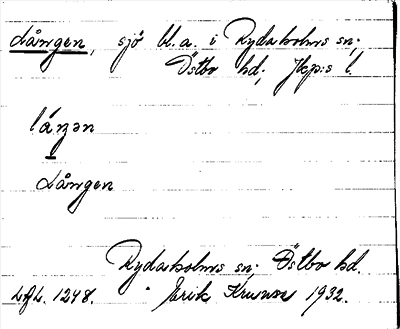 Lången, sjö bl.a. i Rydaholms sn;
Östbo hd; Jkp:s l.
láŋən
Lången
Rydaholms sn. Östbo hd.
1248. Erik 1932.